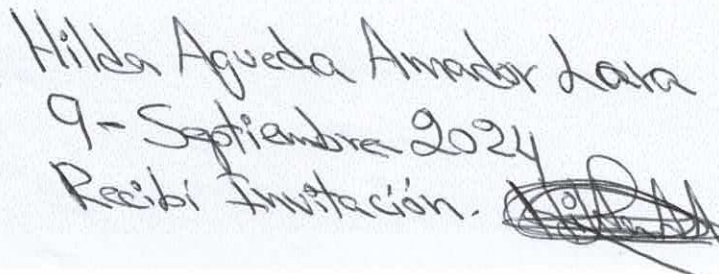 Hilda Agueda Amador Lara
9-Septiembre 2024
Recibí Invitación.